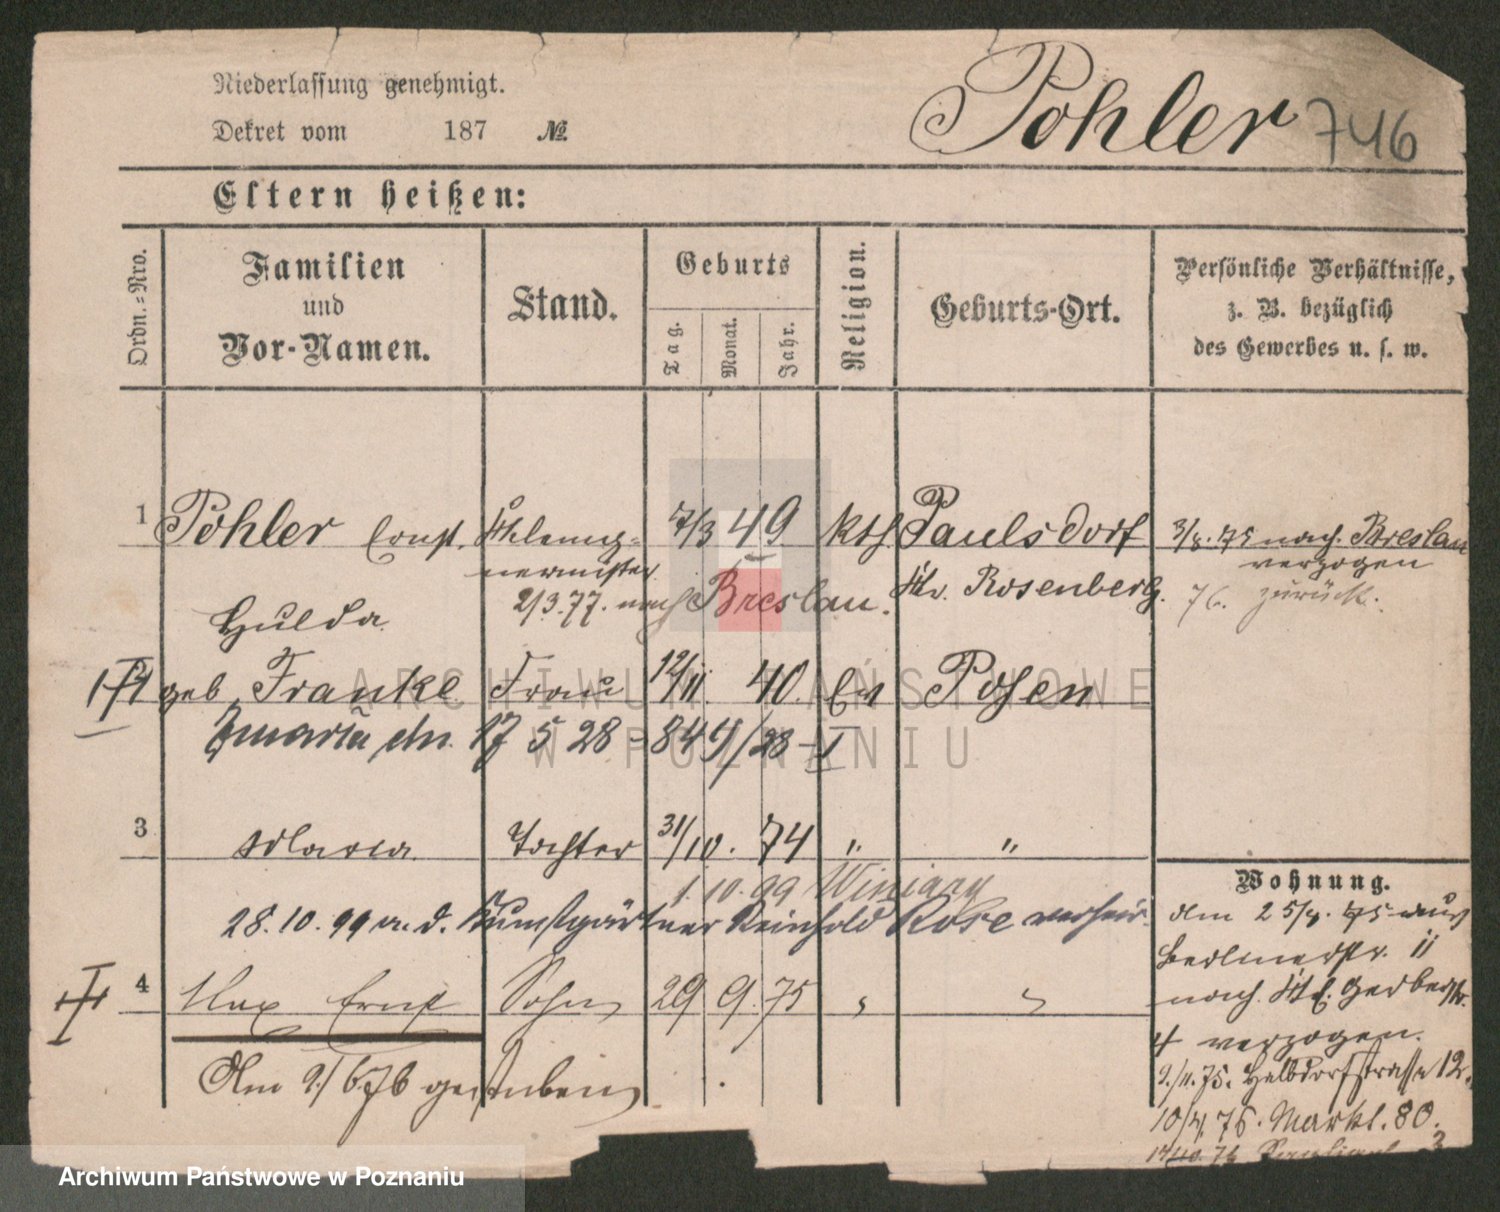 Niederlassung genehmigt.
Dekret vom 187 №
Pohler 746
Eltern heißen:
Ordn.=Nro.
Familien
und
Vor-Namen.
Stand.
Geburts
Tag.
Monat.
Jahr.
Religion.
Geburts-Ort.
Persönliche Verhältnisse,
z. B. bezüglich
des Gewerbes u. s. w.
1 Pohler Ernst. Klempnermeister 7/3 49 kth Paulsdorf
Kr. Rosenberg.
3/8. 75 nach Breslau
verzogen
76. zurück.
2/3.77. nach Breslau.
Hulda
geb. Franke Frau 12/11. 40. Ev Posen
Zmarła dn. 17 5 28 - 844/28 - I
3 Maria Tochter 31/10. 74 " "
1.10.99 Winiary
28.10.99 m. d. Kunstgärtner Reinhold Rose verheir.
4 Max Ernst Sohn 29 9. 75 " "
Am 9/6 76 gestorben
Wohnung.
Am 25/4. 75 aus
Berlinerstr. 11
nach Kl. Gerberstr.
4 verzogen.
9./11.75. Halbdorfstrasse 12.
10/4. 76. Markt. 80.
ARCHIWUM PAŃSTWOWE
W POZNANIU
Archiwum Państwowe w Poznaniu